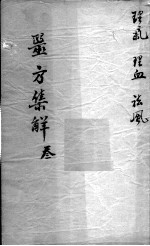 理氣 理血 祛風
醫方集解 叁